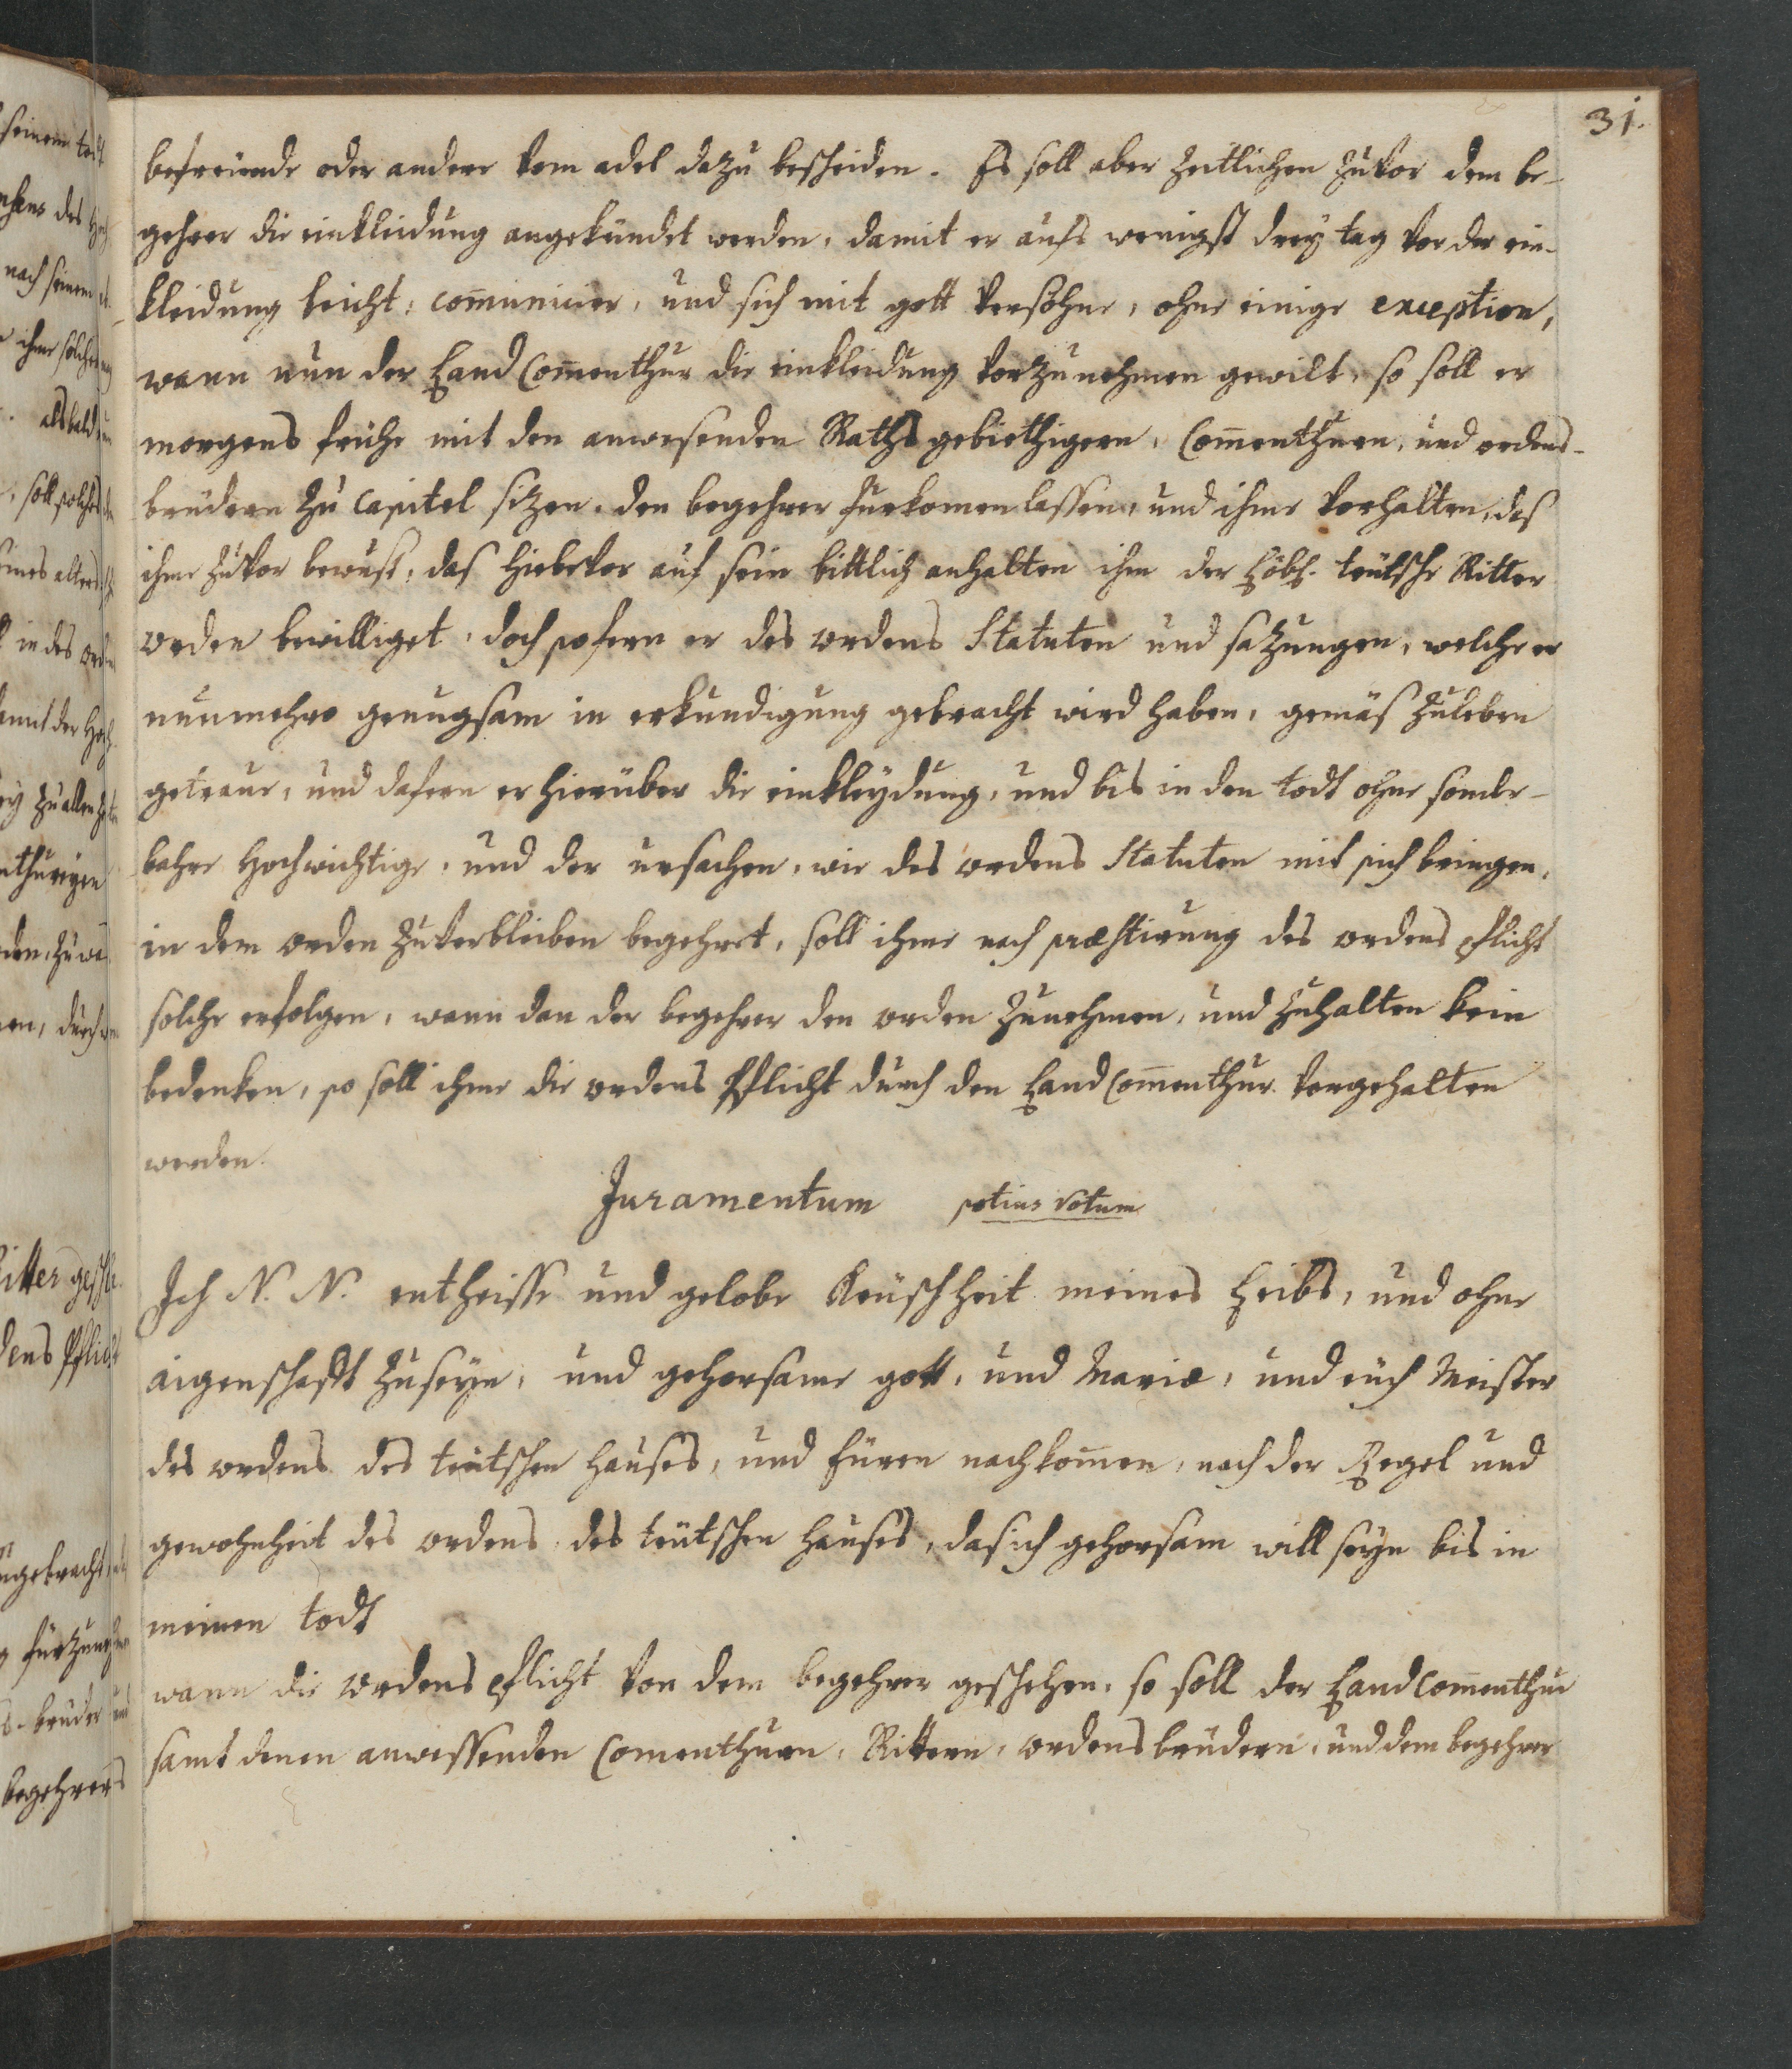 31.
befreünde oder andere vom adel dazu bescheiden. Es soll aber zeitlichen zuvor dem be-
gehrer die einkleidung angekündet werden, damit er aufs wenigst drey tag vor der ein-
kleidung beicht, com̄unicier, und sich mit gott versöhne, ohne einige exception,
wann nun der Land Com̄enthur die einkleidung vorzunehmen gewilt, so soll er
morgens frühe mit den anwesenden Rathsgebiethigern, Com̄enthuren, und ordens-
brüdern zu Capitel sizen, den begehrer fürkomen lassen, und ihme vorhalten, das
ihme zuvor bewust, das hiebevor auf sein bittlich anhalten ihm der Löbl. teütsche Ritter
orden bewilliget, doch sofern er des ordens Statuten und sazungen, welche er
nunmehro genugsam in erkundigung gebracht wird haben, gemäs zuleben
getraue, und dafern er hierüber die einkleydung, und bis in den todt ohne sonder-
bahre hochwichtige, und der ursachen, wie des ordens Statuten mit sich bringen,
in dem orden zuverbleiben begehret, soll ihme nach præstirung des ordens pflicht
solche erfolgen, wann dan der begehrer den orden zunehmen, und zuhalten kein
bedenken, so soll ihme die ordens Pflicht durch den Land Com̄enthur vorgehalten
werden.
Juramentum potius votum
Ich N. N. entheisse und gelobe Keüschheit meines Leibs, und ohne
aigenschafft zuseyn, und gehorsame gott, und Mariæ, und eüch Meister
des ordens des teütschen hauses, und Euren nachkom̄en, nach der Regel und
gewohnheit des ordens, des teütschen hauses, das ich gehorsam will seyn bis in
meinen todt
wann die ordens pflicht von dem begehrer geschehen, so soll der Land Com̄enthur
samt denen anwessenden Comenthuren, Rittern, ordens brüdern, und dem begehrer